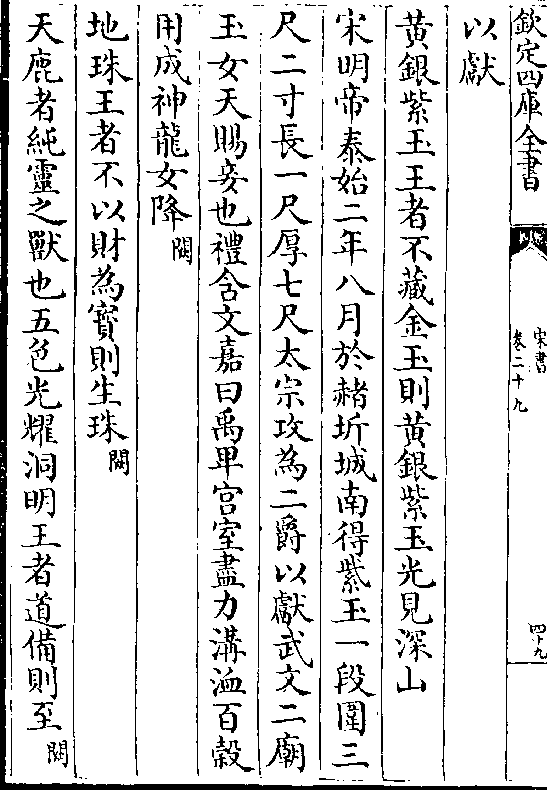 欽定四庫全書
宋書
卷二十九
四十九
以獻
黃銀紫玉王者不藏金玉則黃銀紫玉光見深山
宋明帝泰始二年八月於赭圻城南得紫玉一段圍三
尺二寸長一尺厚七尺太宗攻為二爵以獻武文二廟
玉女天賜妾也禮含文嘉曰禹卑宮室盡力溝洫百穀
用成神龍女降闕
地珠王者不以財為寶則生珠闕
天鹿者純靈之獸也五色光耀洞明王者道備則至闕